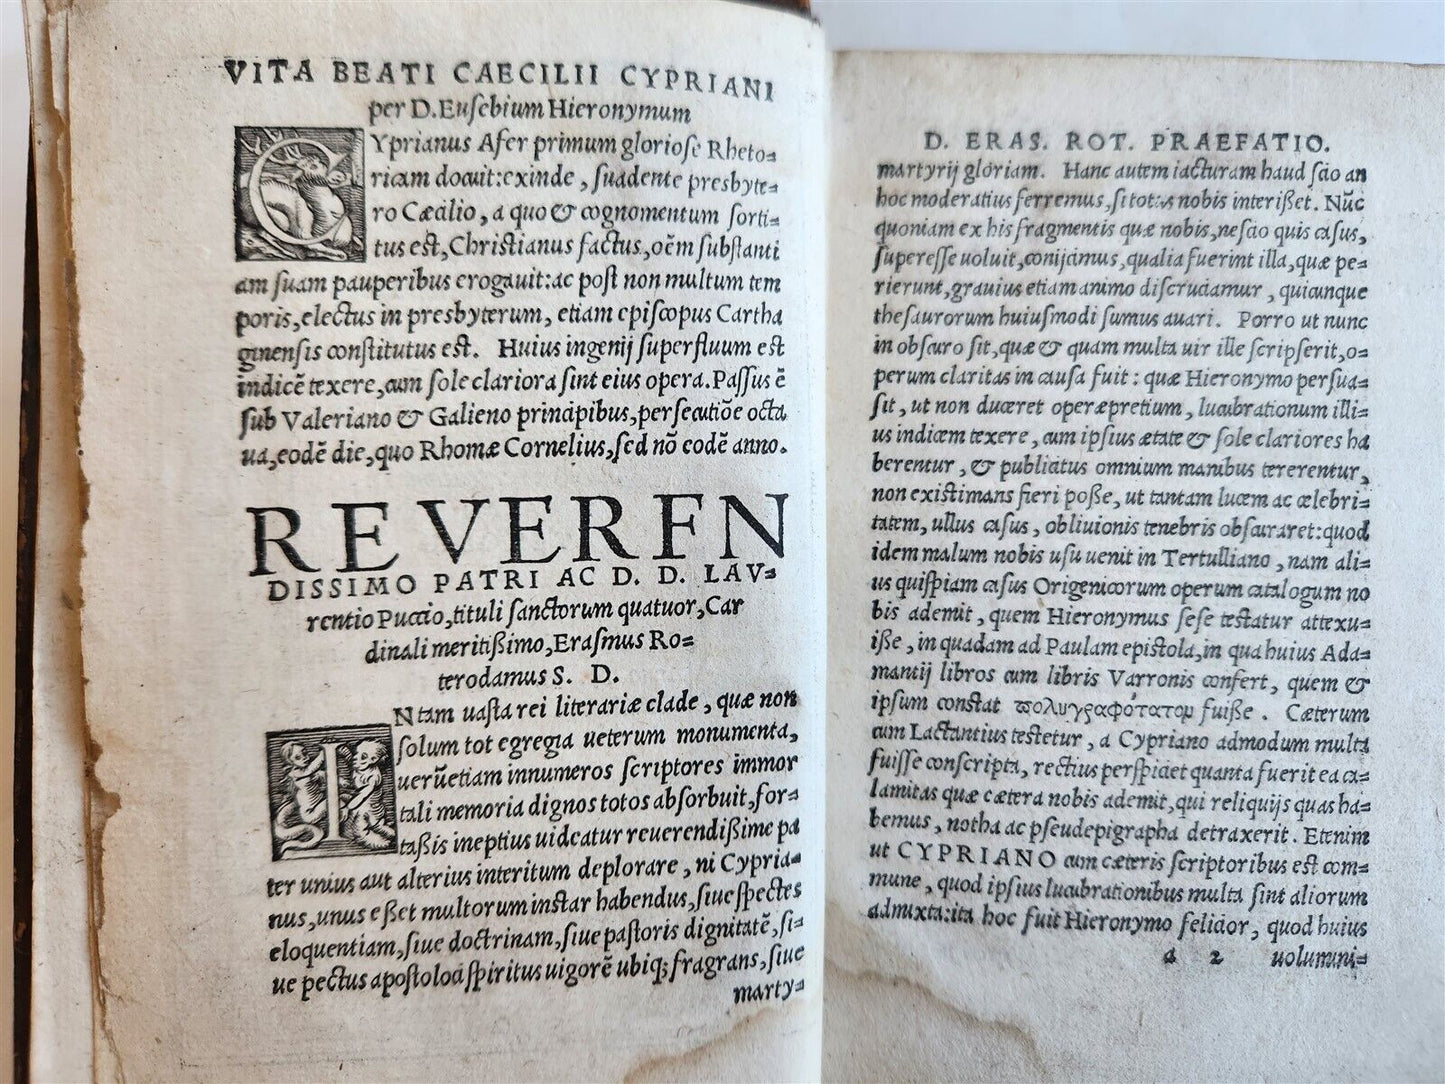 VITA BEATI CAECILII CYPRIANI
per D. Euſebium Hieronymum
CYprianus Afer primum glorioſe Rheto-
ricam docuit: exinde, ſuadente presbyte-
ro Cæcilio, a quo & cognomentum ſorti-
tus eſt, Chriſtianus factus, oēm ſubſtanti
am ſuam pauperibus erogauit: ac poſt non multum tem
poris, electus in presbyterum, etiam epiſcopus Cartha
ginenſis conſtitutus eſt. Huius ingenij ſuperfluum eſt
indicē texere, cum ſole clariora ſint eius opera. Paſſus ē
ſub Valeriano & Galieno principibus, perſecutiōe octa
ua, eodē die, quo Rhomæ Cornelius, ſed nō eodē anno.
REVEREN
DISSIMO PATRI AC D. D. LAV-
rentio Puccio, tituli ſanctorum quatuor, Car
dinali meritißimo, Eraſmus Ro-
terodamus S. D.
INtam uaſta rei literariæ clade, quæ non
ſolum tot egregia ueterum monumenta,
uerūetiam innumeros ſcriptores immor
tali memoria dignos totos abſorbuit, for-
taßis ineptius uideatur reuerendißime pa
ter unius aut alterius interitum deplorare, ni Cypria-
nus, unus eßet multorum inſtar habendus, ſiue ſpectes
eloquentiam, ſiue doctrinam, ſiue paſtoris dignitatē, ſi-
ue pectus apoſtolici ſpiritus uigorē ubiq; fragrans, ſiue
marty-
D. ERAS. ROT. PRAEFATIO.
martyrij gloriam. Hanc autem iacturam haud ſcio an
hoc moderatius ferremus, ſi totus nobis interißet. Nūc
quoniam ex his fragmentis quæ nobis, neſcio quis caſus,
ſupereſſe uoluit, conijcimus, qualia fuerint illa, quæ pe-
rierunt, grauius etiam animo diſcruciamur, quicunque
theſaurorum huiuſmodi ſumus auari. Porro ut nunc
in obſcuro ſit, quæ & quam multa uir ille ſcripſerit, o-
perum claritas in cauſa fuit: quæ Hieronymo perſua-
ſit, ut non duceret operæpretium, lucubrationum illi-
us indicem texere, cum ipſius ætate & ſole clariores ha
berentur, & publicatus omnium manibus tererentur,
non exiſtimans fieri poße, ut tantam lucem ac celebri-
tatem, ullus caſus, obliuionis tenebris obſcuraret: quod
idem malum nobis uſu uenit in Tertulliano, nam ali-
us quiſpiam caſus Origenicorum operum catalogum no
bis ademit, quem Hieronymus ſeſe teſtatur attexu-
iße, in quadam ad Paulam epiſtola, in qua huius Ada-
mantij libros cum libris Varronis confert, quem &
ipſum conſtat πολυγραφότατομ fuiße. Cæterum
cum Lactantius teſtetur, a Cypriano admodum multa
fuiſſe conſcripta, rectius perſpiciet quanta fuerit ea ca-
lamitas quæ cætera nobis ademit, qui reliquijs quas ha-
bemus, notha ac pſeudepigrapha detraxerit. Etenim
ut CYPRIANO cum cæteris ſcriptoribus eſt com-
mune, quod ipſius lucubrationibus multa ſint aliorum
admixta: ita hoc fuit Hieronymo felicior, quod huius
a 2 uolumini-